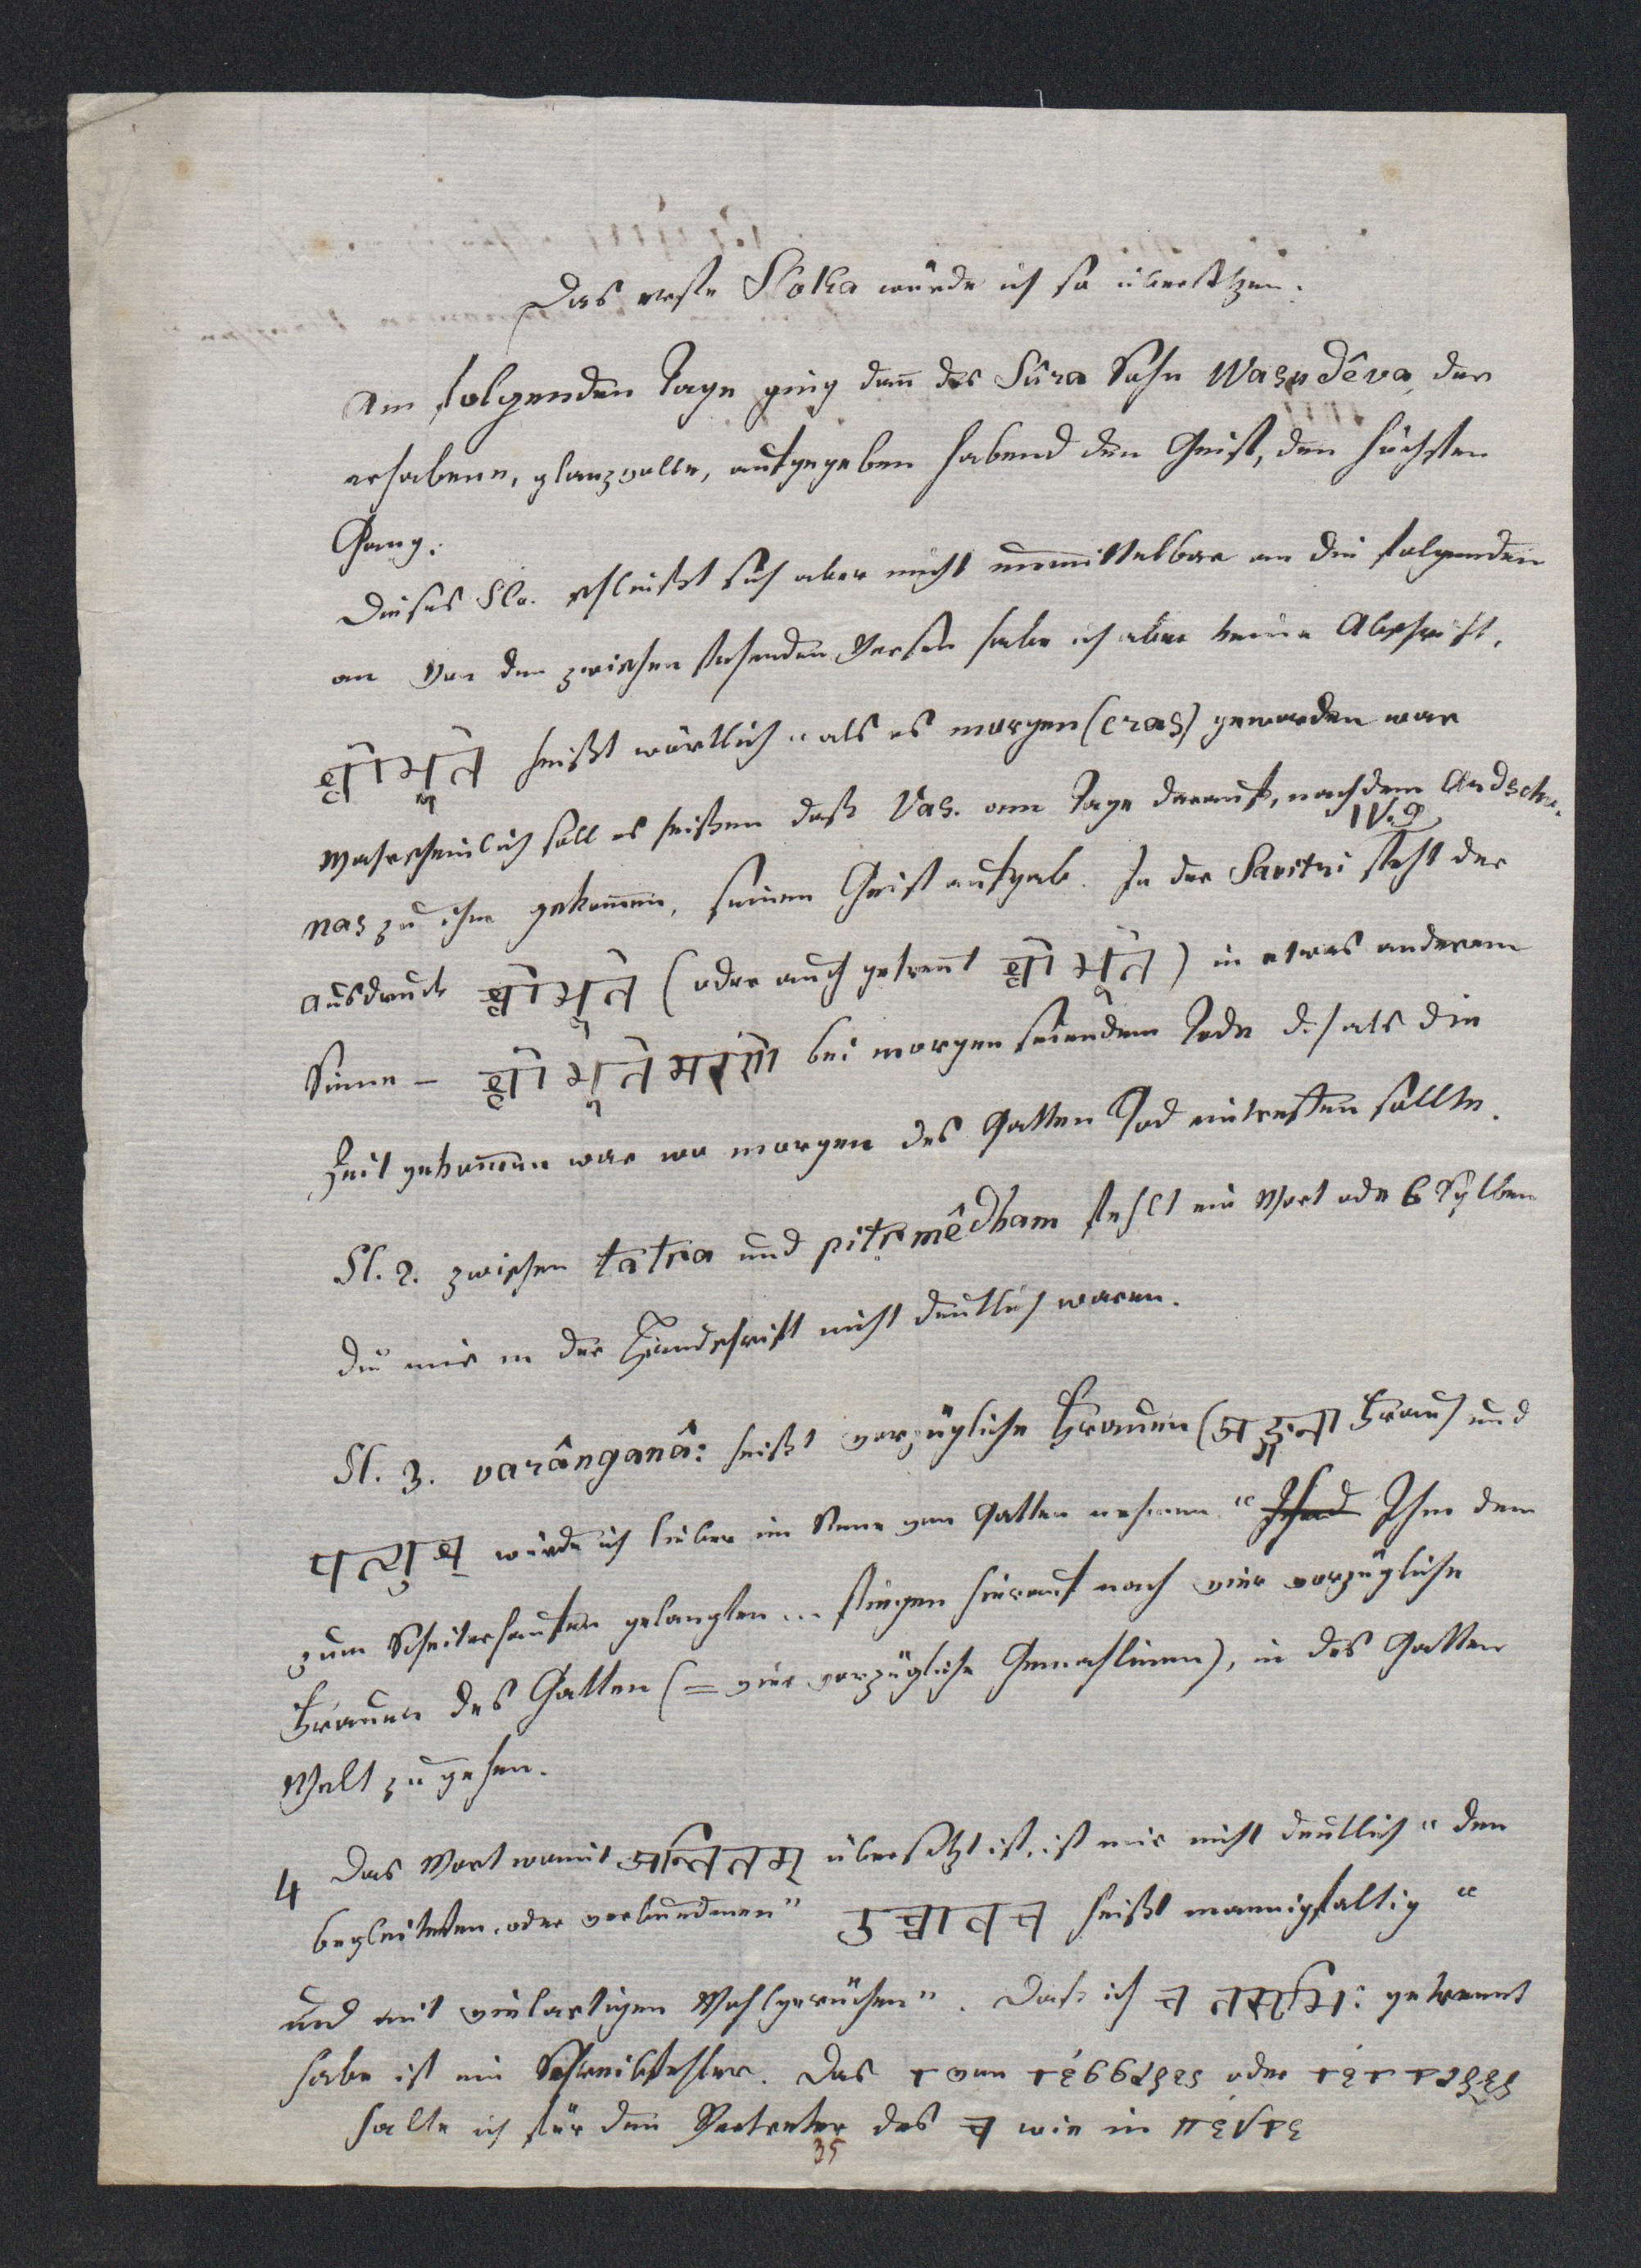 Das erste Sloka würde ich so übersetzen:
Am folgenden Tage ging dañ des Sûra Sohn Wasudêva, der
erhabene, glanzvolle, aufgegeben habend den Geist, den höchsten
Gang.
Dieses Slo. schließt sich aber nicht unmittelbar an die folgenden
an von den zwischen stehenden Versen habe ich aber keine Abschrift.
श्वोभूते heißt wörtlich „als es morgen (cras) geworden war
Wahrscheinlich soll es heißen daß Vas. am Tage darauf, nachdem Ardschu-
nas zu ihm gekom̄en, seinen Geist aufgab. In der Savitri IV.9 steht der
Ausdruck श्वोभूते (oder auch getreñt श्वो भूते) in etwas anderem
Sinne – श्वो भूते मरणे bei morgen seiendem Tode d.h als die
Zeit gekom̄en war wo morgen des Gatten Tod eintreffen sollte.
Sl. 2. zwischen tatra und pitṛmêdham fehlt ein Wort oder 6 Sylben
die mir in der Handschrift nicht deutlich waren.
Sl. 3. varânganâ: heißt vorzügliche Frauen (अङ्गना Frau) und
पत्युश् würde ich lieber im Sinne von Gatten nehmen. „Ihm dem
zum Scheiterhaufen gelangten... stiegen hierauf nach vier vorzügliche
Frauen des Gatten (= vier vorzügliche Gemahlinen), in des Gatten
Welt zu gehen.
4 Das Wort womit अन्वितम् übersetzt ist, ist mir nicht deutlich „den
begleiteten, oder verbundenen" उच्चावच heißt mannigfaltig „
und mit vielartigen Wohlgerüchen". Daß ich च तसृभिः getrennt
habe ist ein Schreibfehler. Das τ von τέσσαρες oder τέτταρες
halte ich für den Vertreter des च wie in πέντε
35